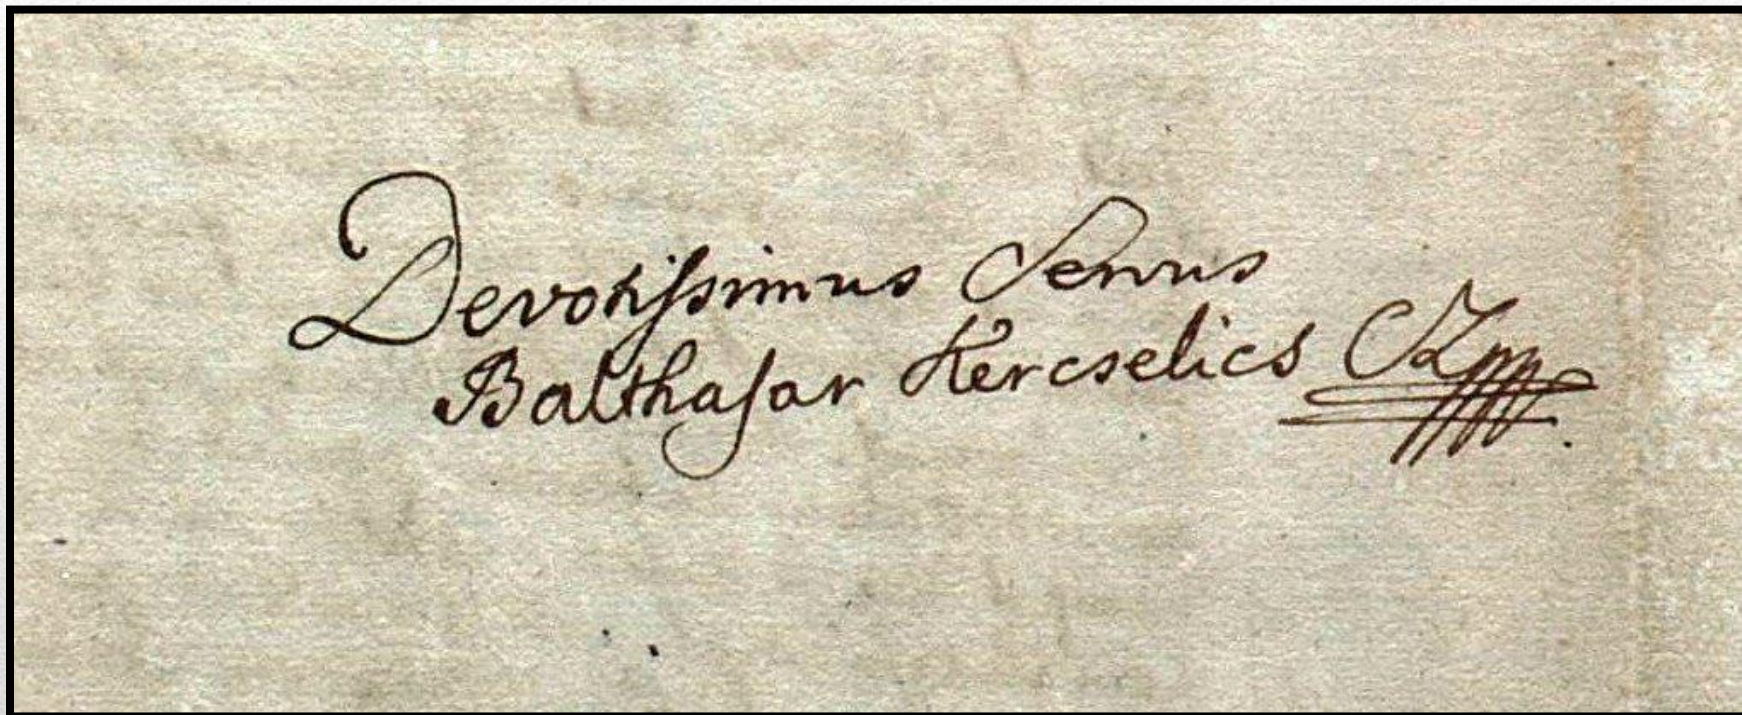 Devotissimus Servus
Balthasar Kercselics